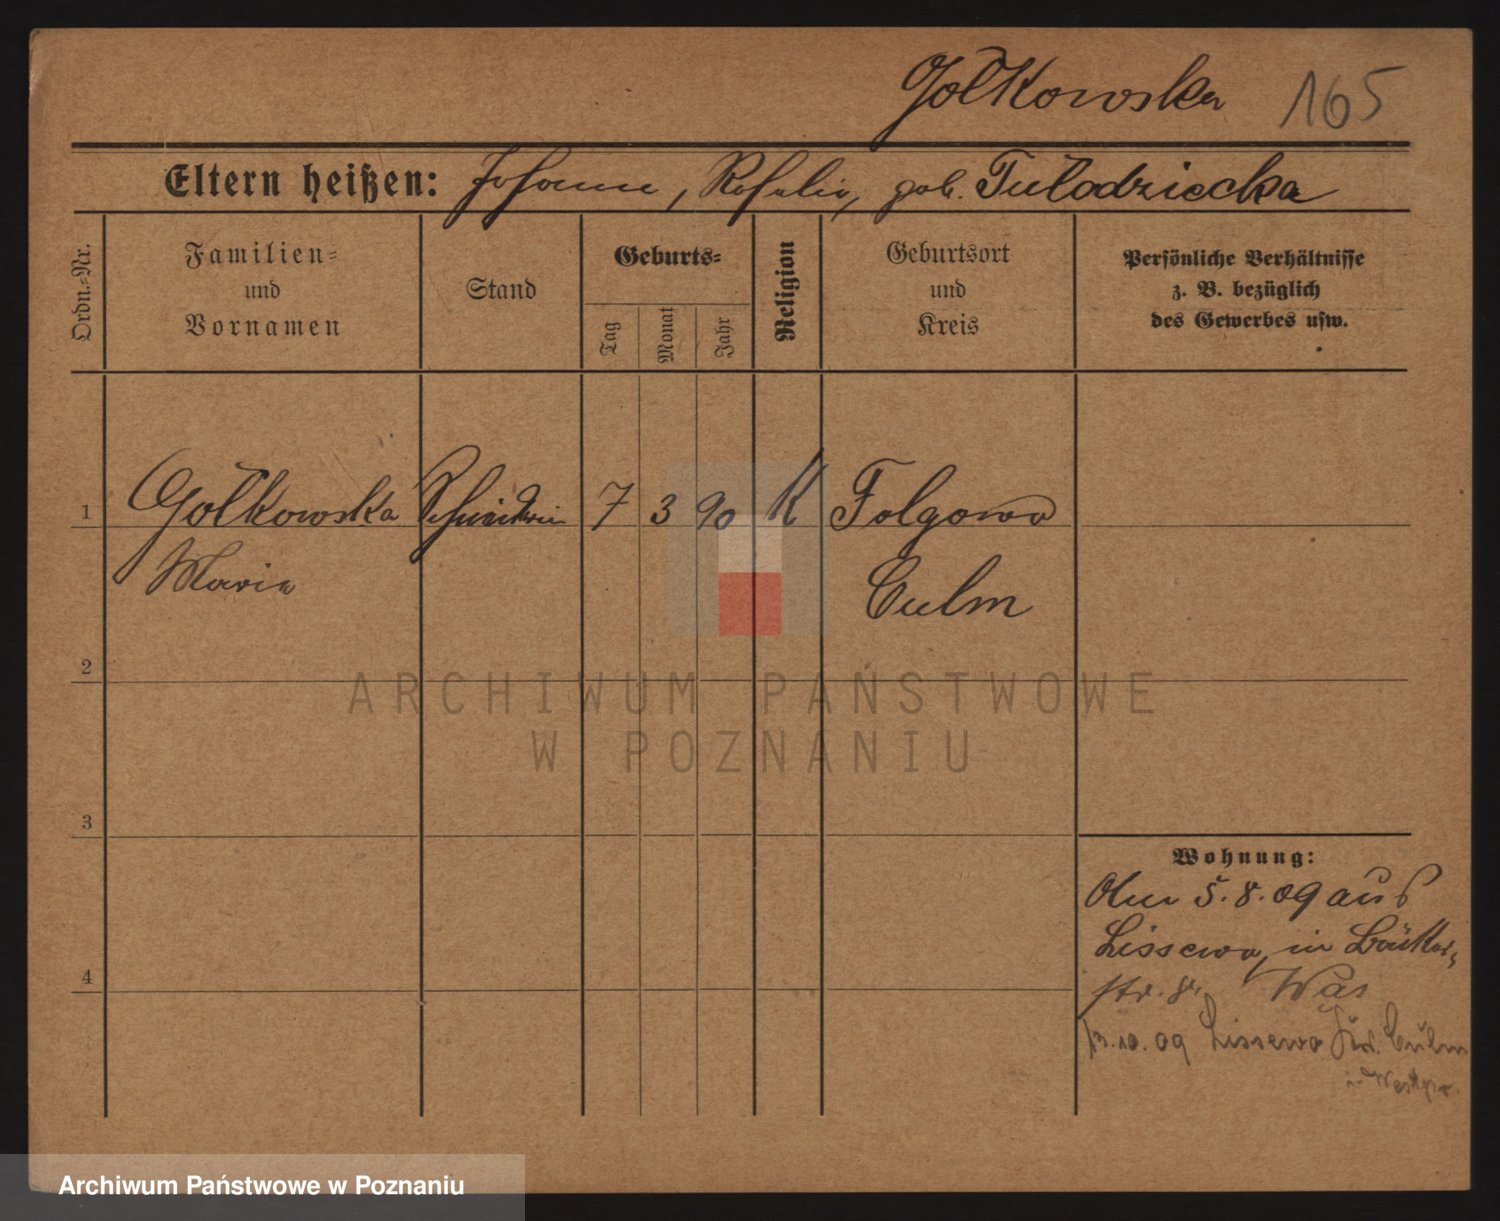 Gołkowska 165
Eltern heißen: Johann, Rosalie, geb. Tułodziecka
Ordn.-Nr.
Familien-
und
Vornamen
Stand
Geburts-
Tag
Monat
Jahr
Religion
Geburtsort
und
Kreis
Persönliche Verhältnisse
z. B. bezüglich
des Gewerbes usw.
1 Gołkowska Schneiderin 7 3 90 K Folgowo
Marie
Culm
2
3
4
Wohnung:
5.8.09 aus
Lissewo, in Bäcker-
str.
10.09 Lissewo Krs. Culm
i. Westpr.
ARCHIWUM PAŃSTWOWE
W POZNANIU
Archiwum Państwowe w Poznaniu